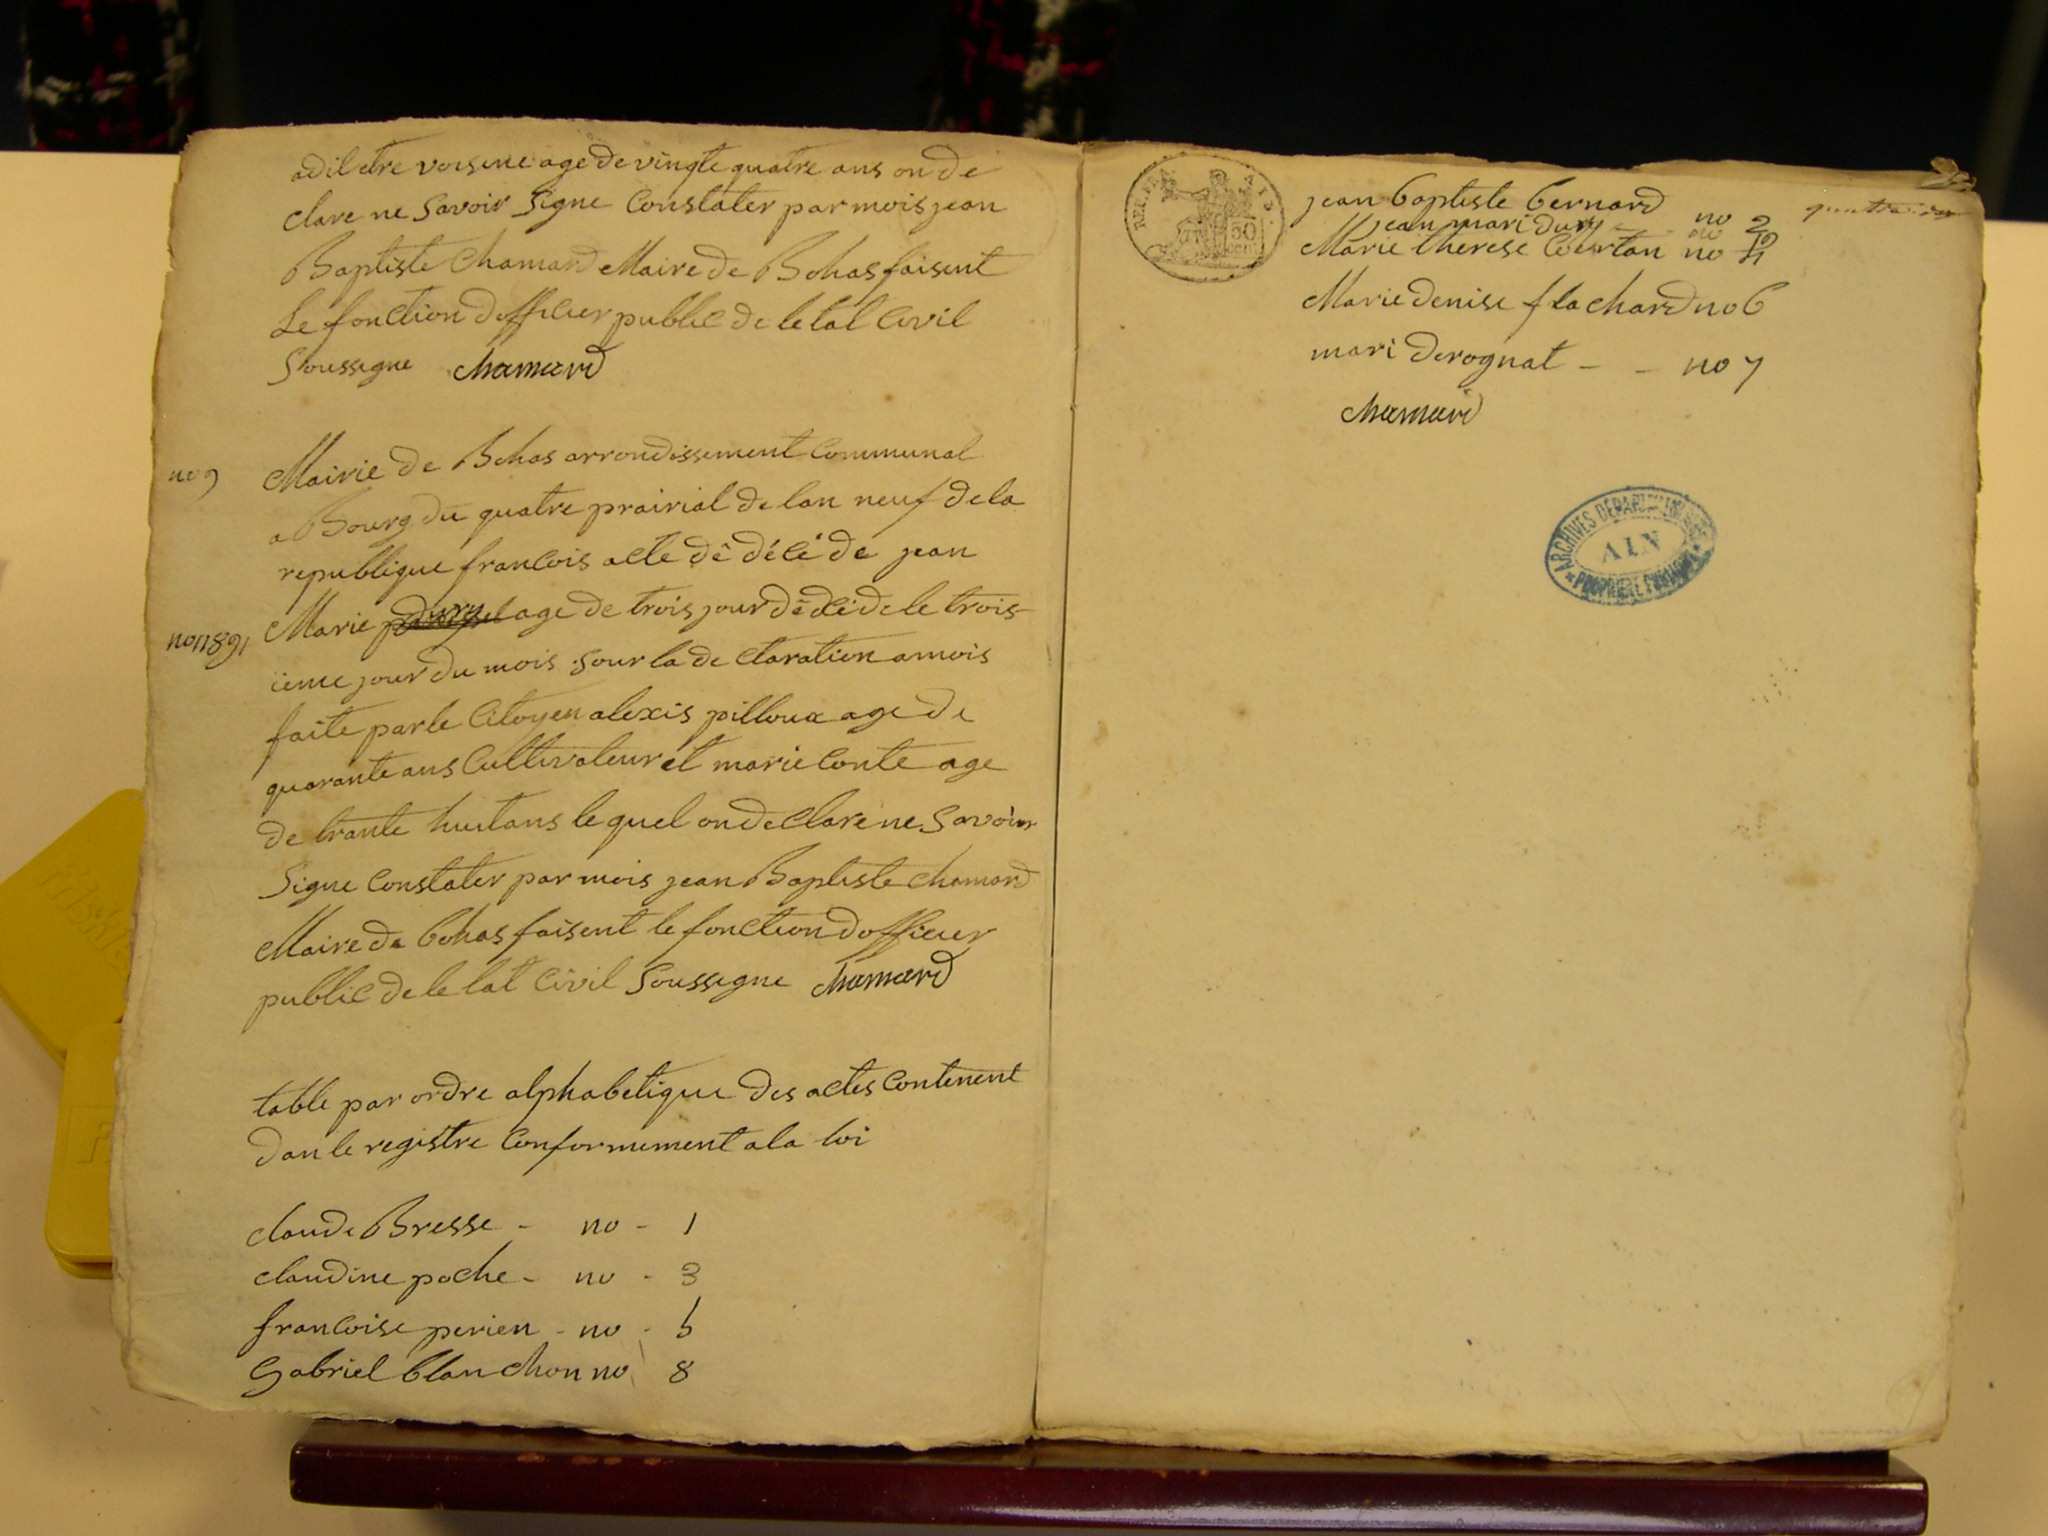 adil etre voisine age de vingte quatre ans on de
clare ne Savoir Signe Constater par mois jean
Baptiste chamard Maire de Bohas faisent
Le fonction dofficier public de letat Civil
Soussigne chamard
no 9
Mairie de Bohas arrondissement Communal
a Bourg du quatre prairial de lan neuf de la
republique francois acte dé décé de jean
Marie age de trois jour dédé de le trois
ieme jour du mois sour la de claration a mois
faite par le Citoyen alexis pilloux age de
quarante ans Cultivateur et marie Conte age
de trante huit ans le quel on de Clare ne Savoir
Signe Constater par mois jean Baptiste chamard
Maire de bohas faisent le fonction dofficier
public de le tat Civil Soussigne chamard
table par ordre alphabetique des actes Contenent
dan le registre Conformement a la loi
claude Bresse - no - 1
claudine poche - no - 3
francoise perien - no - 5
Gabriel blanchon no 8
50
jean baptiste bernard no 2
jean mari dury no
Marie therese no 4
Marie denise flachard no 6
mari derognat - - no 7
chamard
ARCHIVES DEPARTEMENTALES
AIN
PROPRIETE PUBLIQUE